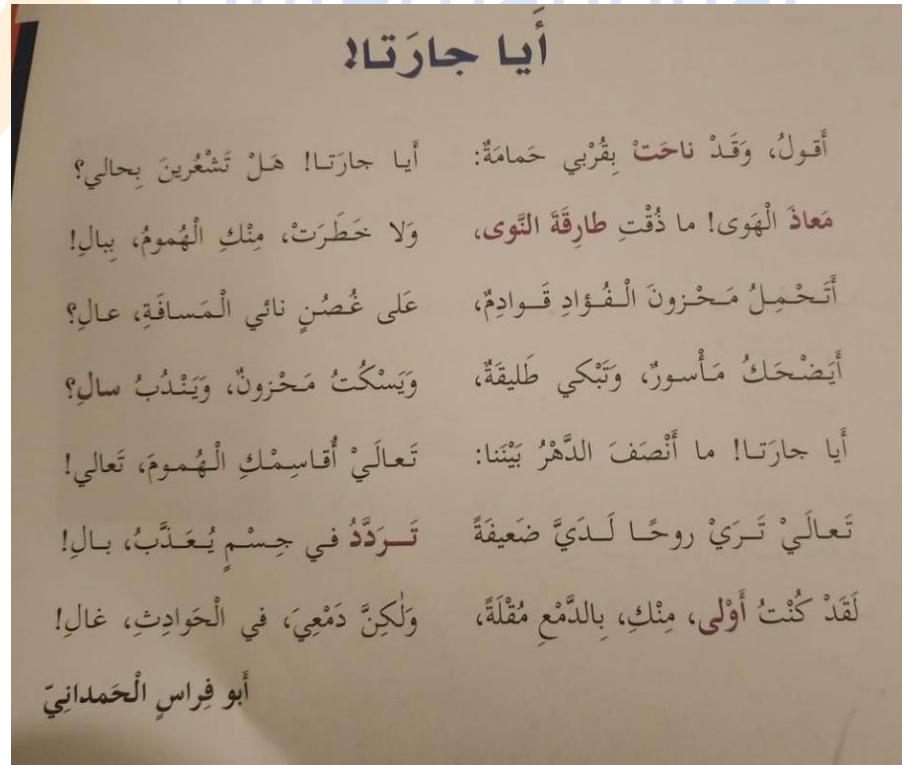 أَيا جارَتا!
أَقولُ، وَقَدْ ناحَتْ بِقُرْبي حَمامَةٌ: أَيا جارَتا! هَلْ تَشْعُرينَ بِحالي؟
مَعاذَ الْهَوى! ما ذُقْتِ طارِقَةَ النَّوى، وَلا خَطَرَتْ، مِنْكِ الْهُمومُ، بِبالِ!
أَتَحْمِلُ مَحْزونَ الْفُؤادِ قَوادِمٌ، عَلى غُصُنٍ نائي الْمَسافَةِ، عالِ؟
أَيَضْحَكُ مَأْسورٌ، وَتَبْكي طَليقَةٌ، وَيَسْكُتُ مَحْزونٌ، وَيَنْدُبُ سالِ؟
أَيا جارَتا! ما أَنْصَفَ الدَّهْرُ بَيْنَنا: تَعالَيْ أُقاسِمْكِ الْهُمومَ، تَعالي!
تَعالَيْ تَرَيْ روحًا لَدَيَّ ضَعيفَةً تَرَدَّدُ في جِسْمٍ يُعَذَّبُ، بالِ!
لَقَدْ كُنْتُ أَوْلى، مِنْكِ، بِالدَّمْعِ مُقْلَةً، وَلٰكِنَّ دَمْعِيَ، في الْحَوادِثِ، غالِ!
أَبو فِراسٍ الْحَمدانِيّ